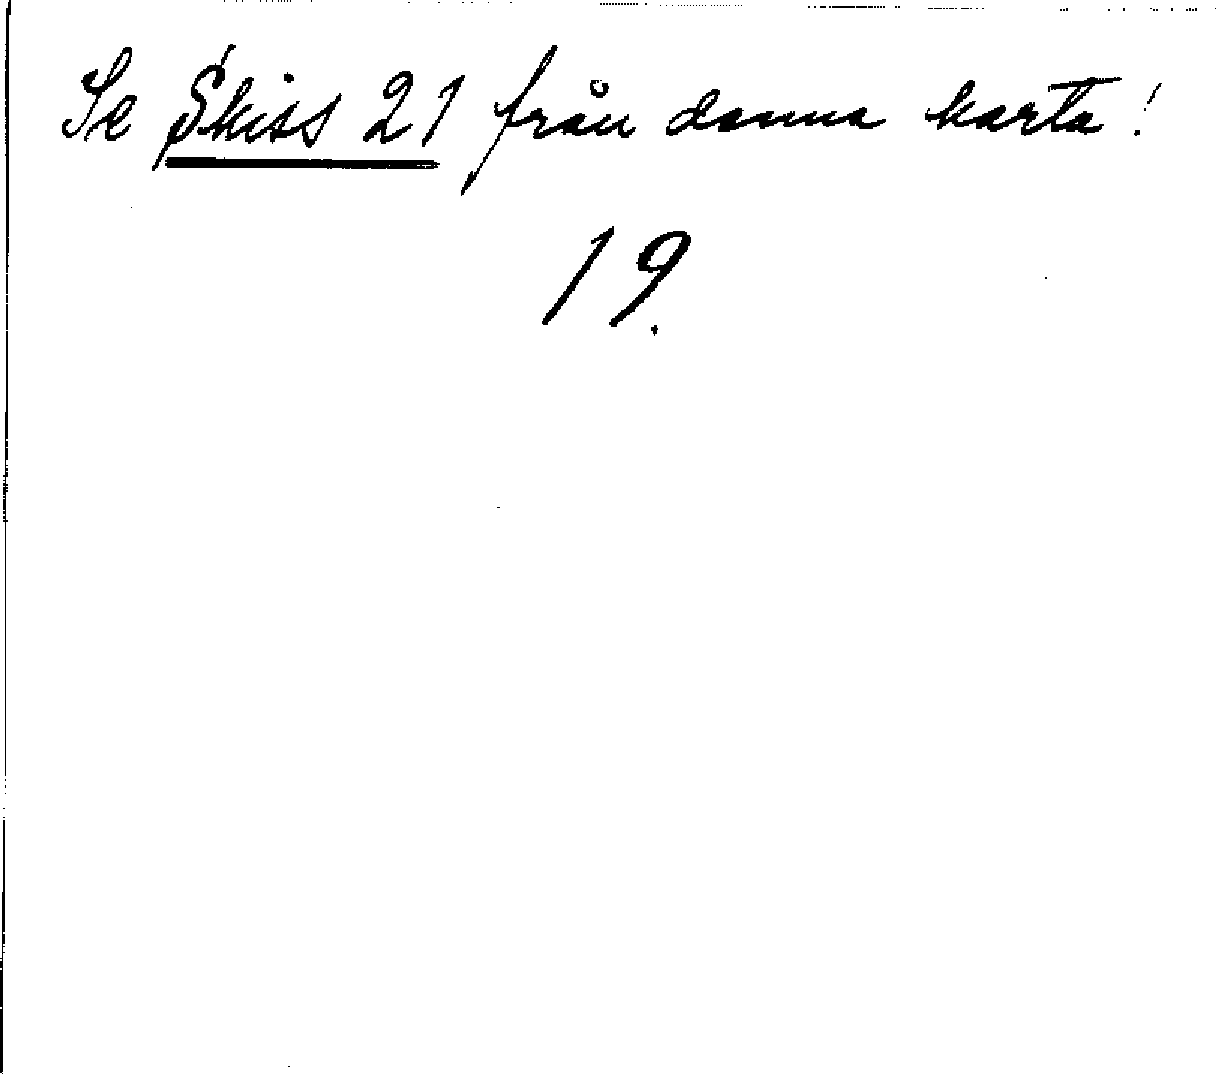 Se Skiss 21 från denna karta!
19.